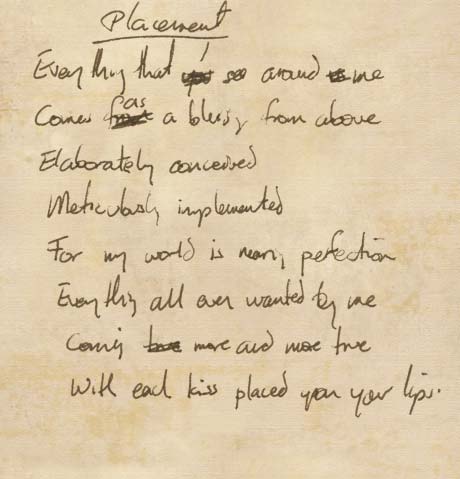 Placement
Everything that I see around me
Comes as a blessing from above
Elaborately conceived
Meticulously implemented
For my world is nearing perfection
Everything all ever wanted by me
Coming more and more true
With each kiss placed upon your lips.